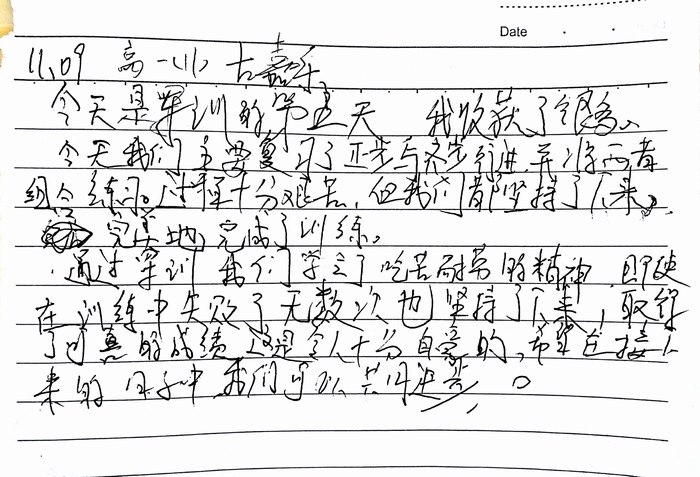 Date
11.09 高一(1) 古嘉乐
今天是军训的第五天 我收获了很多。
今天我们主要复习了正步与齐步行进,并将两者
组合练习。过程十分艰苦,但我们都坚持了下来。
完美地完成了训练。
通过军训 我们学会了吃苦耐劳的精神 即使
在训练中失败了无数次也坚持了下来,取得
了可喜的成绩 这是令人十分自豪的,希望在接下
来的日子中 我们可以共同进步。